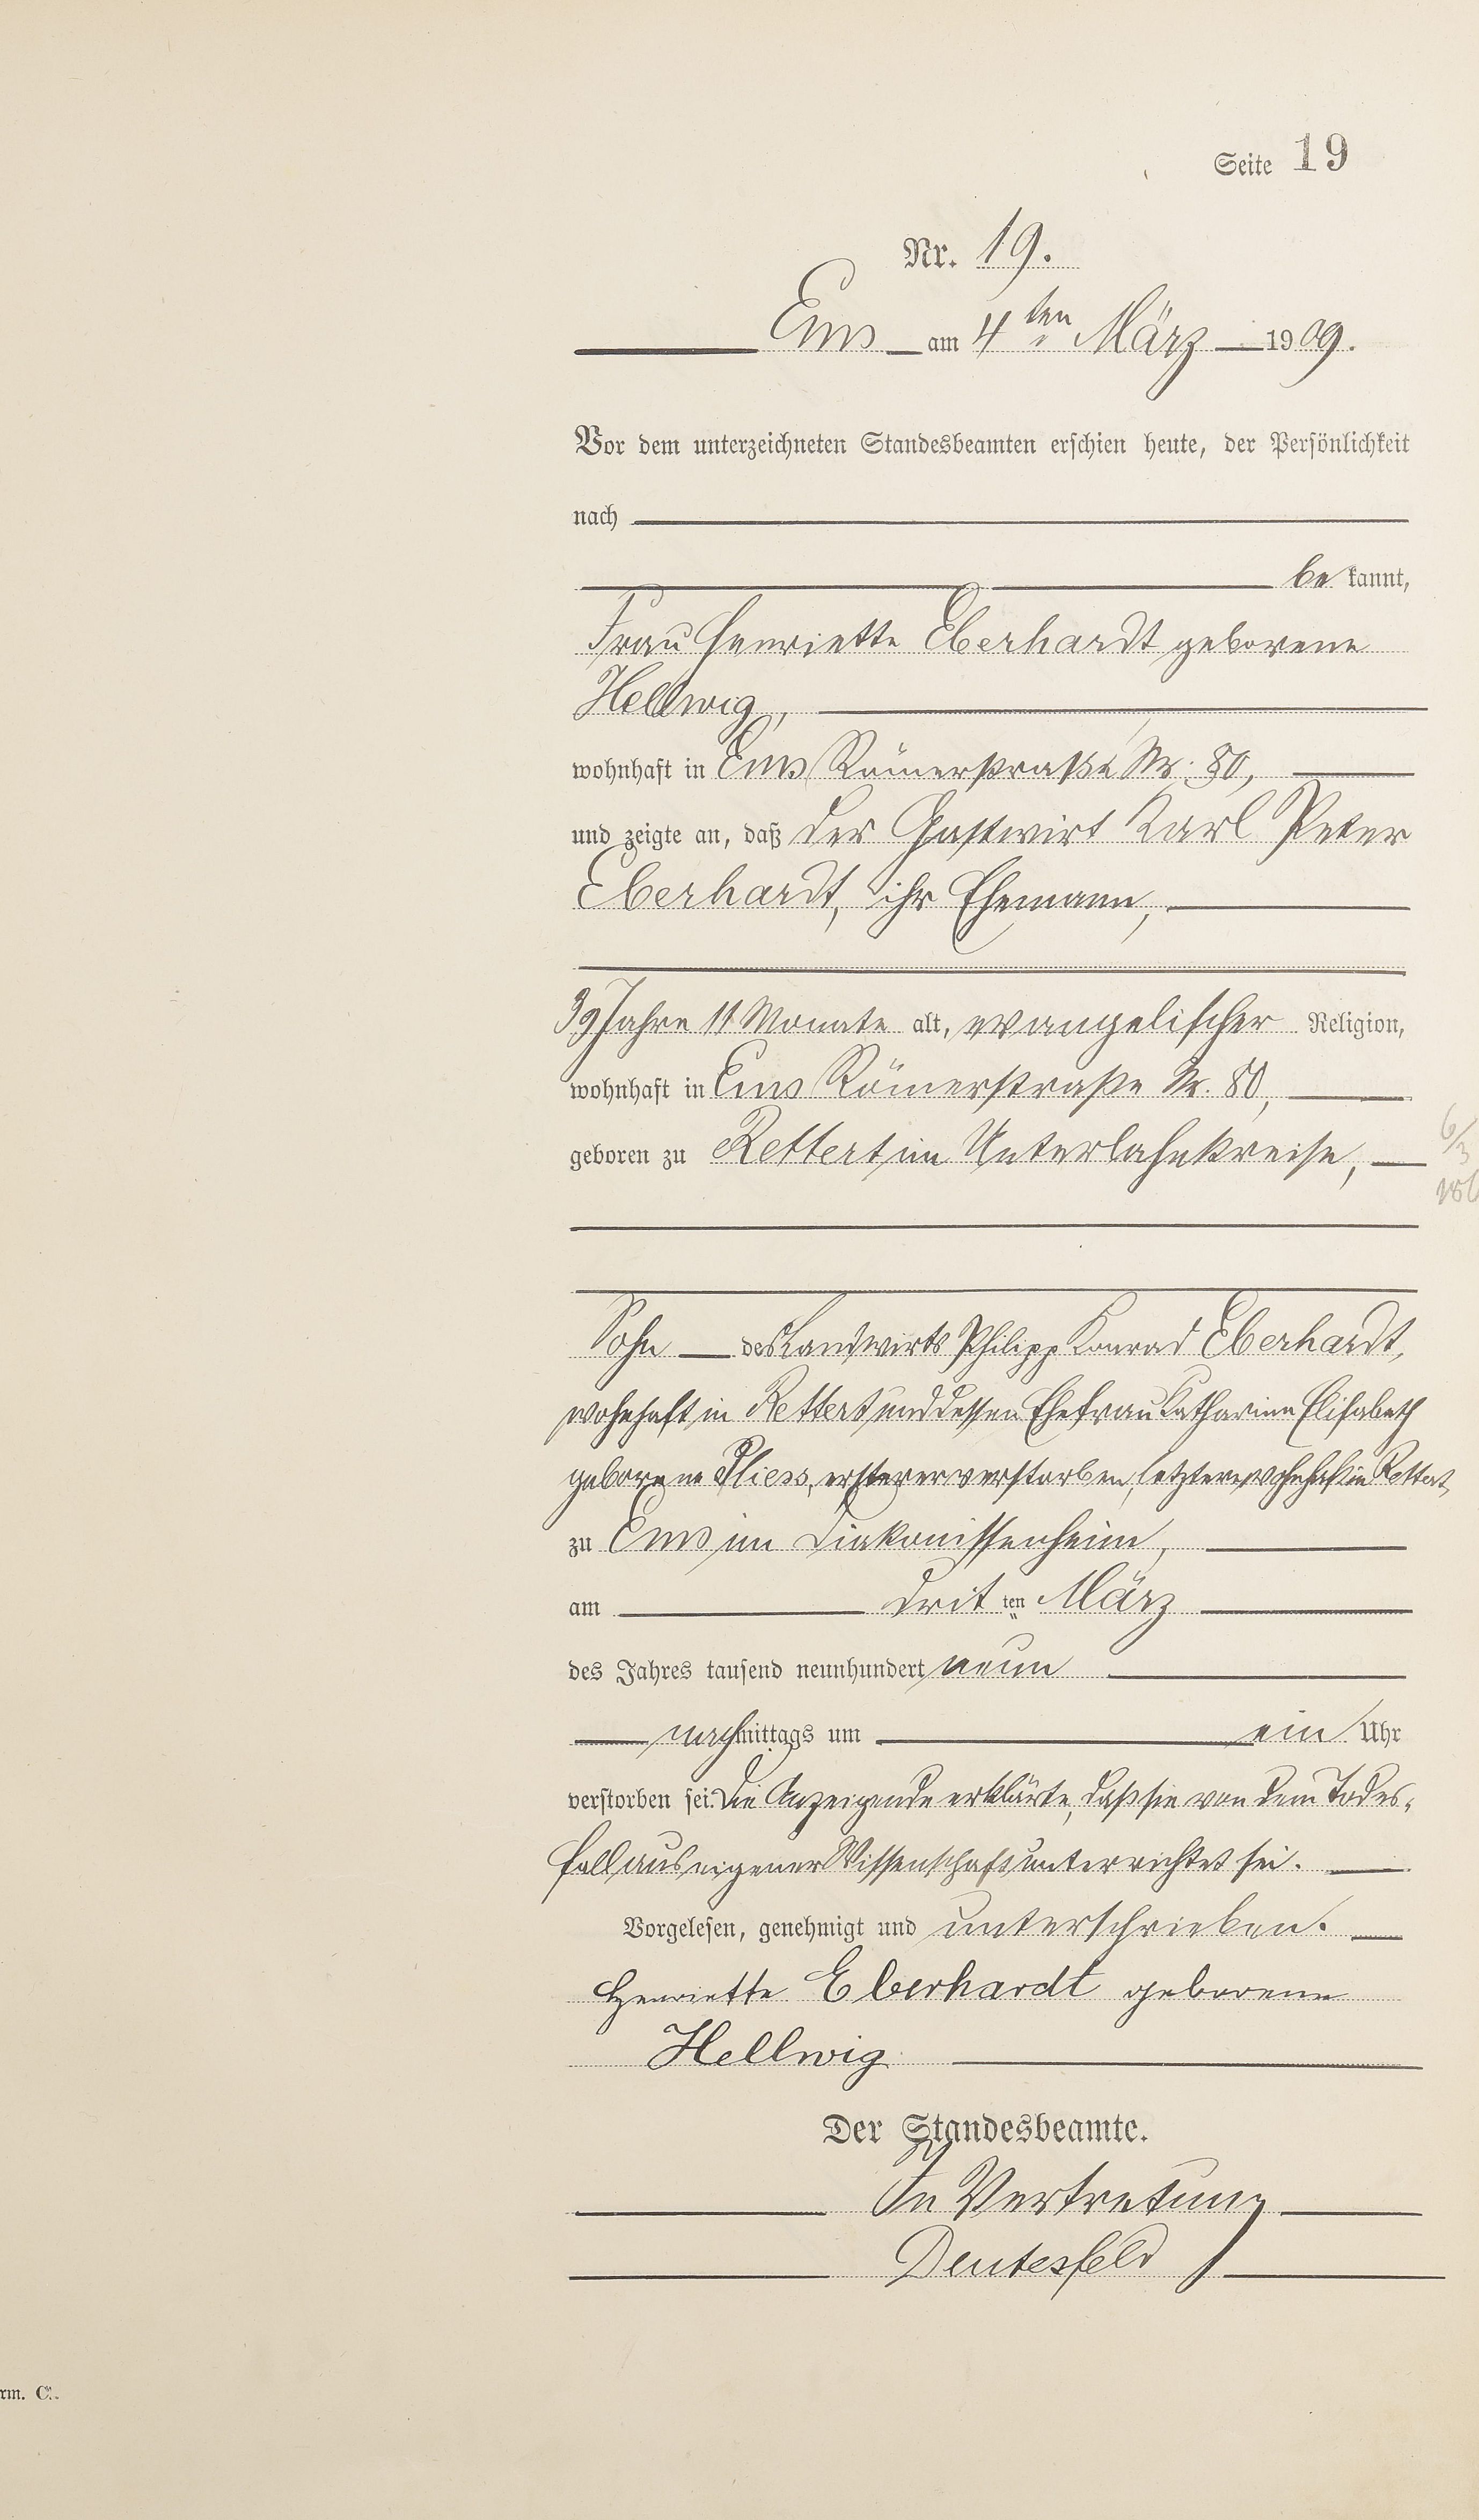 Seite 19
Nr. 19.
Ems am 4ten März 1909.
Vor dem unterzeichneten Standesbeamten erschien heute, der Persönlichkeit
nach
bekannt,
Frau Henriette Eberhardt geborene
Hellwig,
wohnhaft in Ems Römerstraße Nr. 80,
und zeigte an, daß der Gastwirt Karl Peter
Eberhardt, ihr Ehemann,
39 Jahre 11 Monate alt, evangelischer Religion,
wohnhaft in Ems Römerstraße Nr. 80,
geboren zu Rettert im Unterlahnkreise,
6/3
Sohn des Landwirts Philipp Konrad Eberhardt,
wohnhaft in Rettert und dessen Ehefrau Katharina Elisabeth
geborene Pliess, ersterer verstorben, letztere wohnhaft in Rettert,
zu Ems im Diakonissenheim,
am dritten März
des Jahres tausend neunhundert neun
nachmittags um ein Uhr
verstorben sei. Die Anzeigende erklärte, daß sie von dem Todes-
fall aus eigener Wissenschaft unterrichtet sei.
Vorgelesen, genehmigt und unterschrieben.
Henriette Eberhardt geborene
Hellwig
Der Standesbeamte.
In Vertretung
Deutesfeld
rm. C.